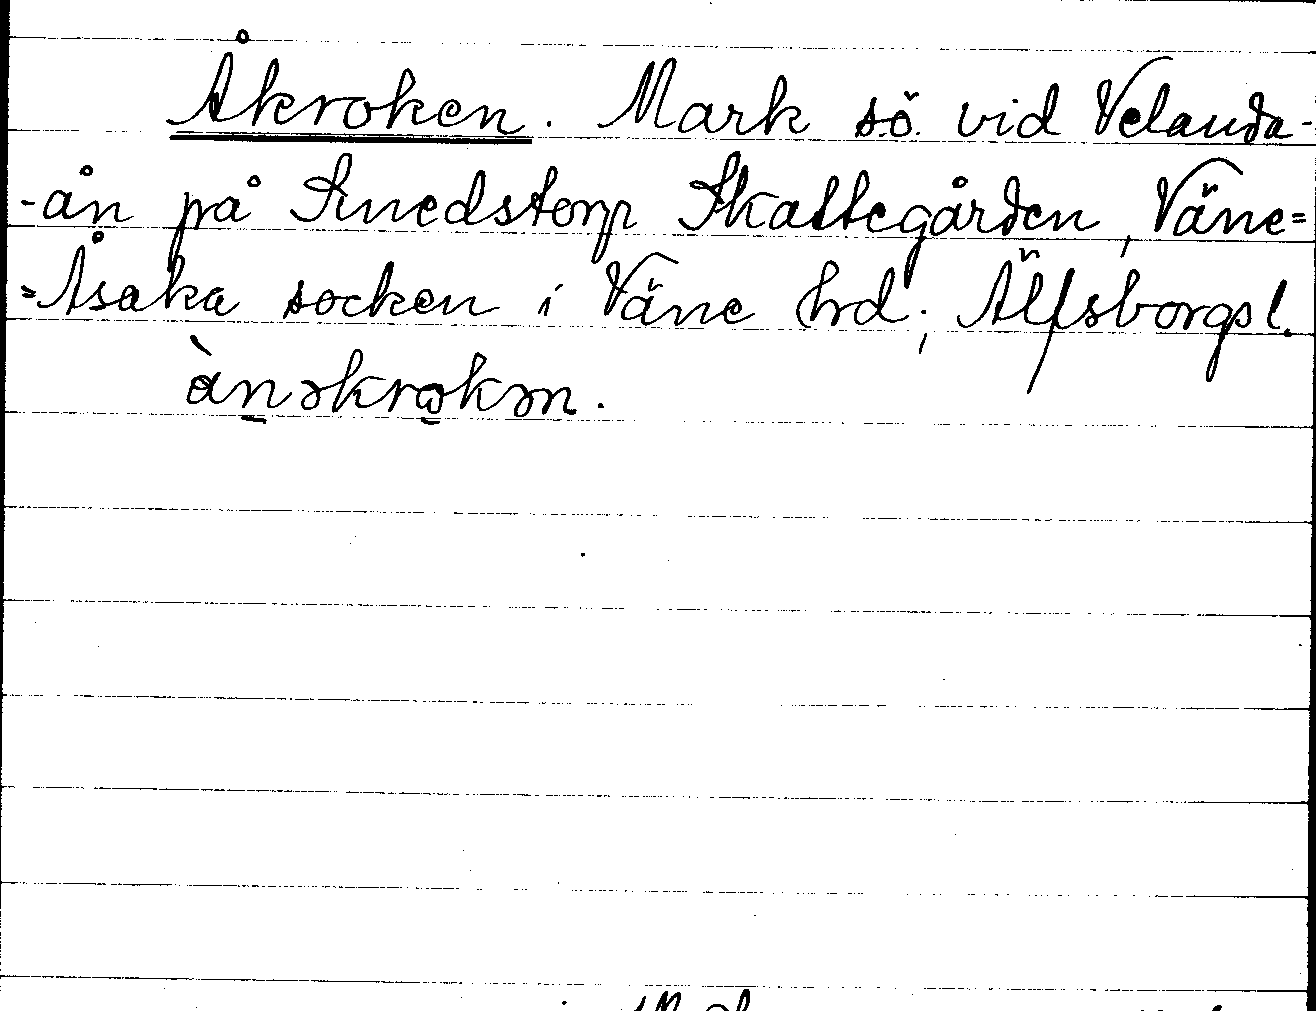 Åkroken. Mark sö. vid Velanda-
-ån på Smedstorp Skattegården, Väne=
=Åsaka socken i Väne hrd; Älfsborgs l.
ànəkrokən.